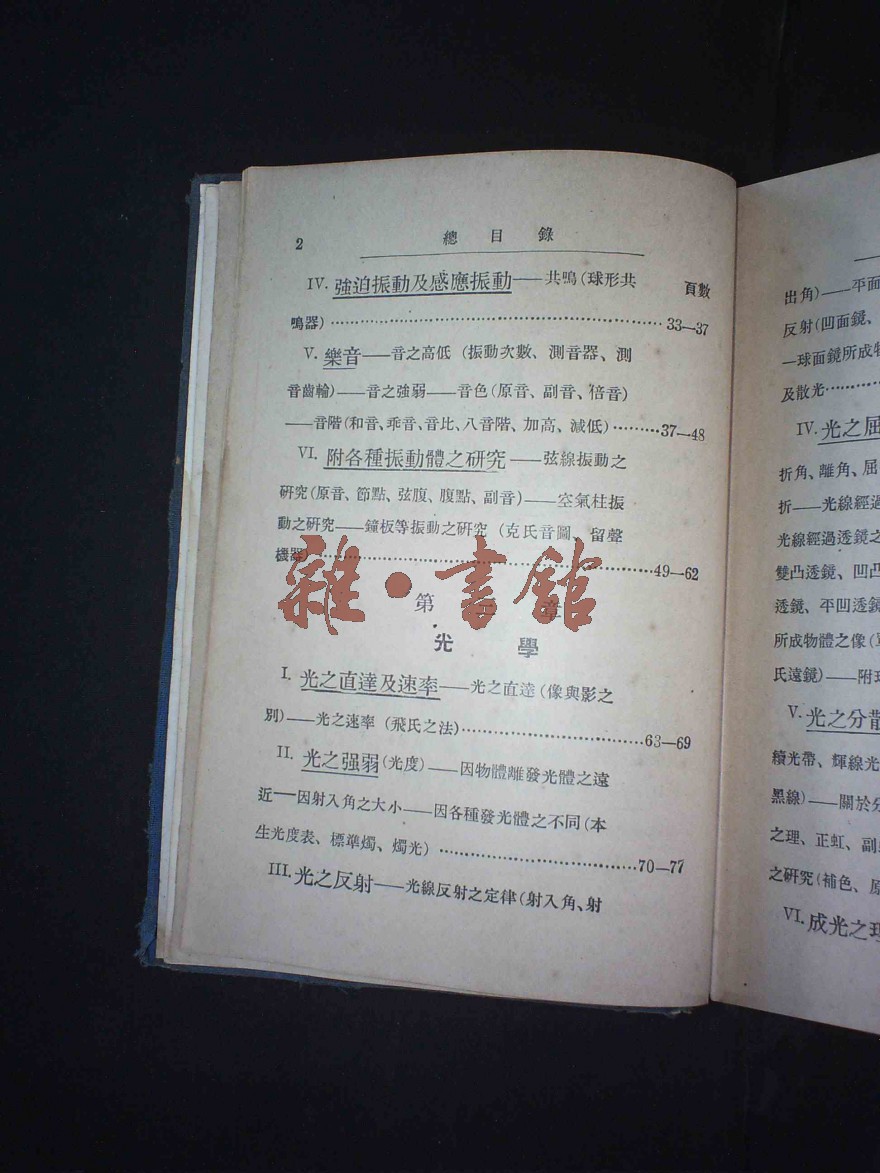 2
總目錄
頁數
IV. 強迫振動及感應振動——共鳴(球形共
鳴器)……33—37
V. 樂音——音之高低(振動次數、測音器、測
音齒輪)——音之強弱——音色(原音、副音、倍音)
——音階(和音、乖音、音比、八音階、加高、減低)……37—48
VI. 附各種振動體之研究——弦線振動之
研究(原音、節點、弦腹、腹點、副音)——空氣柱振
動之研究——鐘板等振動之研究(克氏音圖、留聲
機器)……49—62
雜·書館
第 章
光學
I. 光之直達及速率——光之直達(像與影之
別)——光之速率(飛氏之法)……63—69
II. 光之强弱(光度)——因物體離發光體之遠
近——因射入角之大小——因各種發光體之不同(本
生光度表、標準燭、燭光)……70—77
III. 光之反射——光線反射之定律(射入角、射
出角)——平面
反射(凹面鏡、
—球面鏡所成物
及散光……
IV. 光之屈
折角、離角、屈
折——光線經過
光線經過透鏡之
雙凸透鏡、凹凸
透鏡、平凹透鏡
所成物體之像(
氏遠鏡)——附
V. 光之分散
續光帶、輝線光
黑線)——關於分
之理、正虹、副
之研究(補色、原
VI. 成光之理